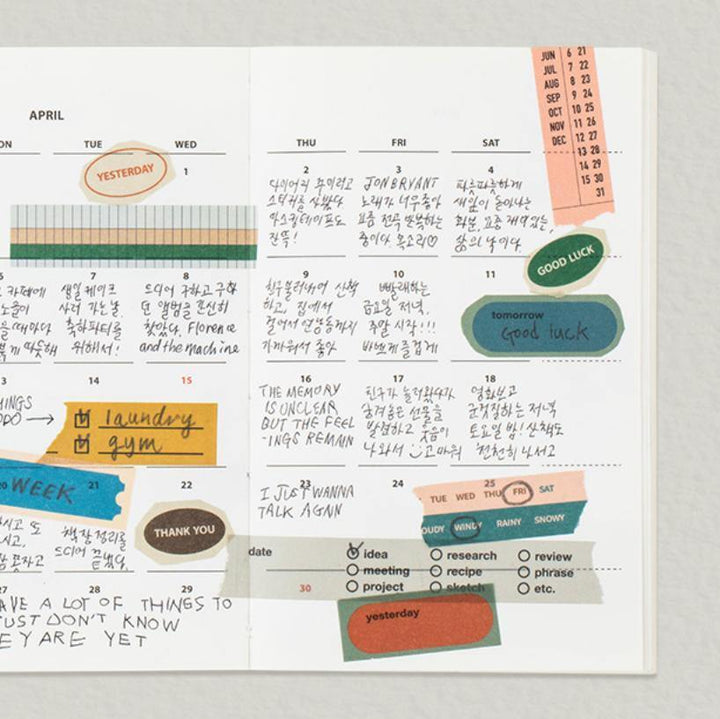 APRIL
ON
TUE
WED
THU
FRI
SAT
JUN 6 21
JUL 7 22
AUG 8 23
SEP 9 24
OCT 10 25
NOV 11 26
DEC 12 27
13 28
14 29
15 30
31
YESTERDAY
1
2
다이어리 꾸미려고
스티커를 샀봤다
마스킹테이프도
잔뜩!
3
JON BRYANT
노래가 너무좋아
요즘 전곡 반복하는
중이다 목소리♡
4
파릇파릇하게
새잎이 돋아나는
화분. 요즘 재밌는,
삶의 낙이다.
GOOD LUCK
6
카페에
7
생일 케이크
사러 가는날.
축하파티를
위해서!
8
드디어 구하고 구하
던 앨범을
찾았다. Florence
and the machine
9
산책
하고, 집에서
걸어서
가까워서 좋아
10
빨래하는
금요일 저녁.
주말 시작!!!
즐겁게
11
tomorrow
Good luck
13
THINGS
DO →
14
15
laundry
gym
16
THE MEMORY
IS UNCLEAR
BUT THE FEEL
-INGS REMAIN
17
친구가 놀러왔다가
숨겨놓은 선물을
발견하고 웃음이
나와서 고마워
18
영화보고
군것질하는 저녁
토요일 밤! 산책도
천천히 나서고
WEEK
21
책장 정리를
드디어 끝냈다.
22
THANK YOU
23
I JUST WANNA
TALK AGAIN
24
25
TUE WED THU FRI SAT
OUDY WINDY RAINY SNOWY
date
idea
research
review
meeting
recipe
phrase
30
project
sketch
etc.
27
28
29
AVE A LOT OF THINGS TO
JUST DON'T KNOW
EY ARE YET
yesterday